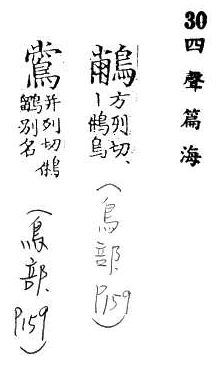 30 四聲篇海
方列切、
丨鵂鳥
(鳥部 P159)
并列切鵂
鶹別名
(鳥部 P159)